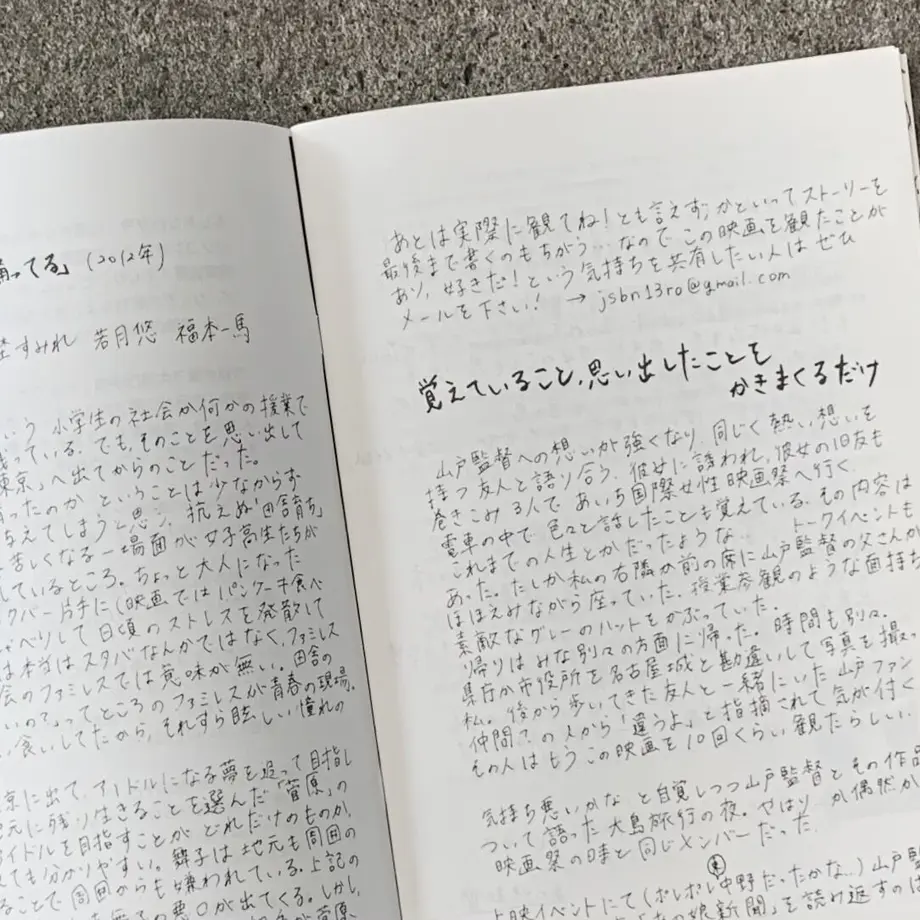 踊ってる」(2012年)
すみれ 若月悠 福本一馬
いう 小学生の社会か何かの授業で
残っている。でも、そのことを思い出して
東京」へ出てからのことだった。
ったのか ということは少なからず
与えてしまうと思う。抗えぬ「田舎育ち」
苦しくなる 場面が女子高生たちが
しているところ。ちょっと大人になった
クバー片手に(映画では パンケーキ食べ
ゃべりして 日頃のストレスを発散して
は本当は スタバなんかではなく、ファミレス
会のファミレスでは意味が無い。田舎の
いの?」ってところのファミレスが青春の現場。
い食いしてたから、それすら眩しい憧れの
京に出て、アイドルになる夢を追って目指し
地元に残り生きることを選んだ「菅原」の
アイドルを目指すことが どれだけのものか、
ても分かりやすい。舞子は 地元も周囲の
ることで 周囲からも嫌われている。上記の
の悪口が出てくる。しかし、
あとは実際に観てね!とも言えずかといってストーリーを
最後まで書くのもちがう…なので、この映画を観たことが
あり、好きだ!という気持ちを共有したい人は ぜひ
メールを下さい! → jsbn13ro@gmail.com
覚えていること、思い出したことを
かきまくるだけ
山戸監督への想いが強くなり、同じく熱い想いを
持つ友人と語り合う。彼女に誘われ、彼女の旧友も
巻きこみ 3人で あいち国際女性映画祭へ行く。
電車の中で 色々と話したことも覚えている。その内容は
これまでの人生とかだったような… トークイベントも
あった。たしか私の右隣か前の席に山戸監督の父さんが
ほほえみながら座っていた。授業参観のような面持ち
素敵なグレーのハットをかぶっていた。
帰りは みな別々の方面に帰った。時間も別々。
県庁か市役所を名古屋城と勘違いして写真を撮る
私。後から歩いてきた友人と一緒にいた山戸ファン
仲間?の人から「違うよ」と指摘されて気が付く
その人はもうこの映画を10回くらい観たらしい。
気持ち悪いかな と自覚しつつ山戸監督とその作品
ついて語った 大島旅行の夜。やはり か偶然か
映画祭の時と同じメンバーだった。
東
上映イベントにて(ポレポレ中野だったかな…)山戸監
娘新聞」を読み返すのは